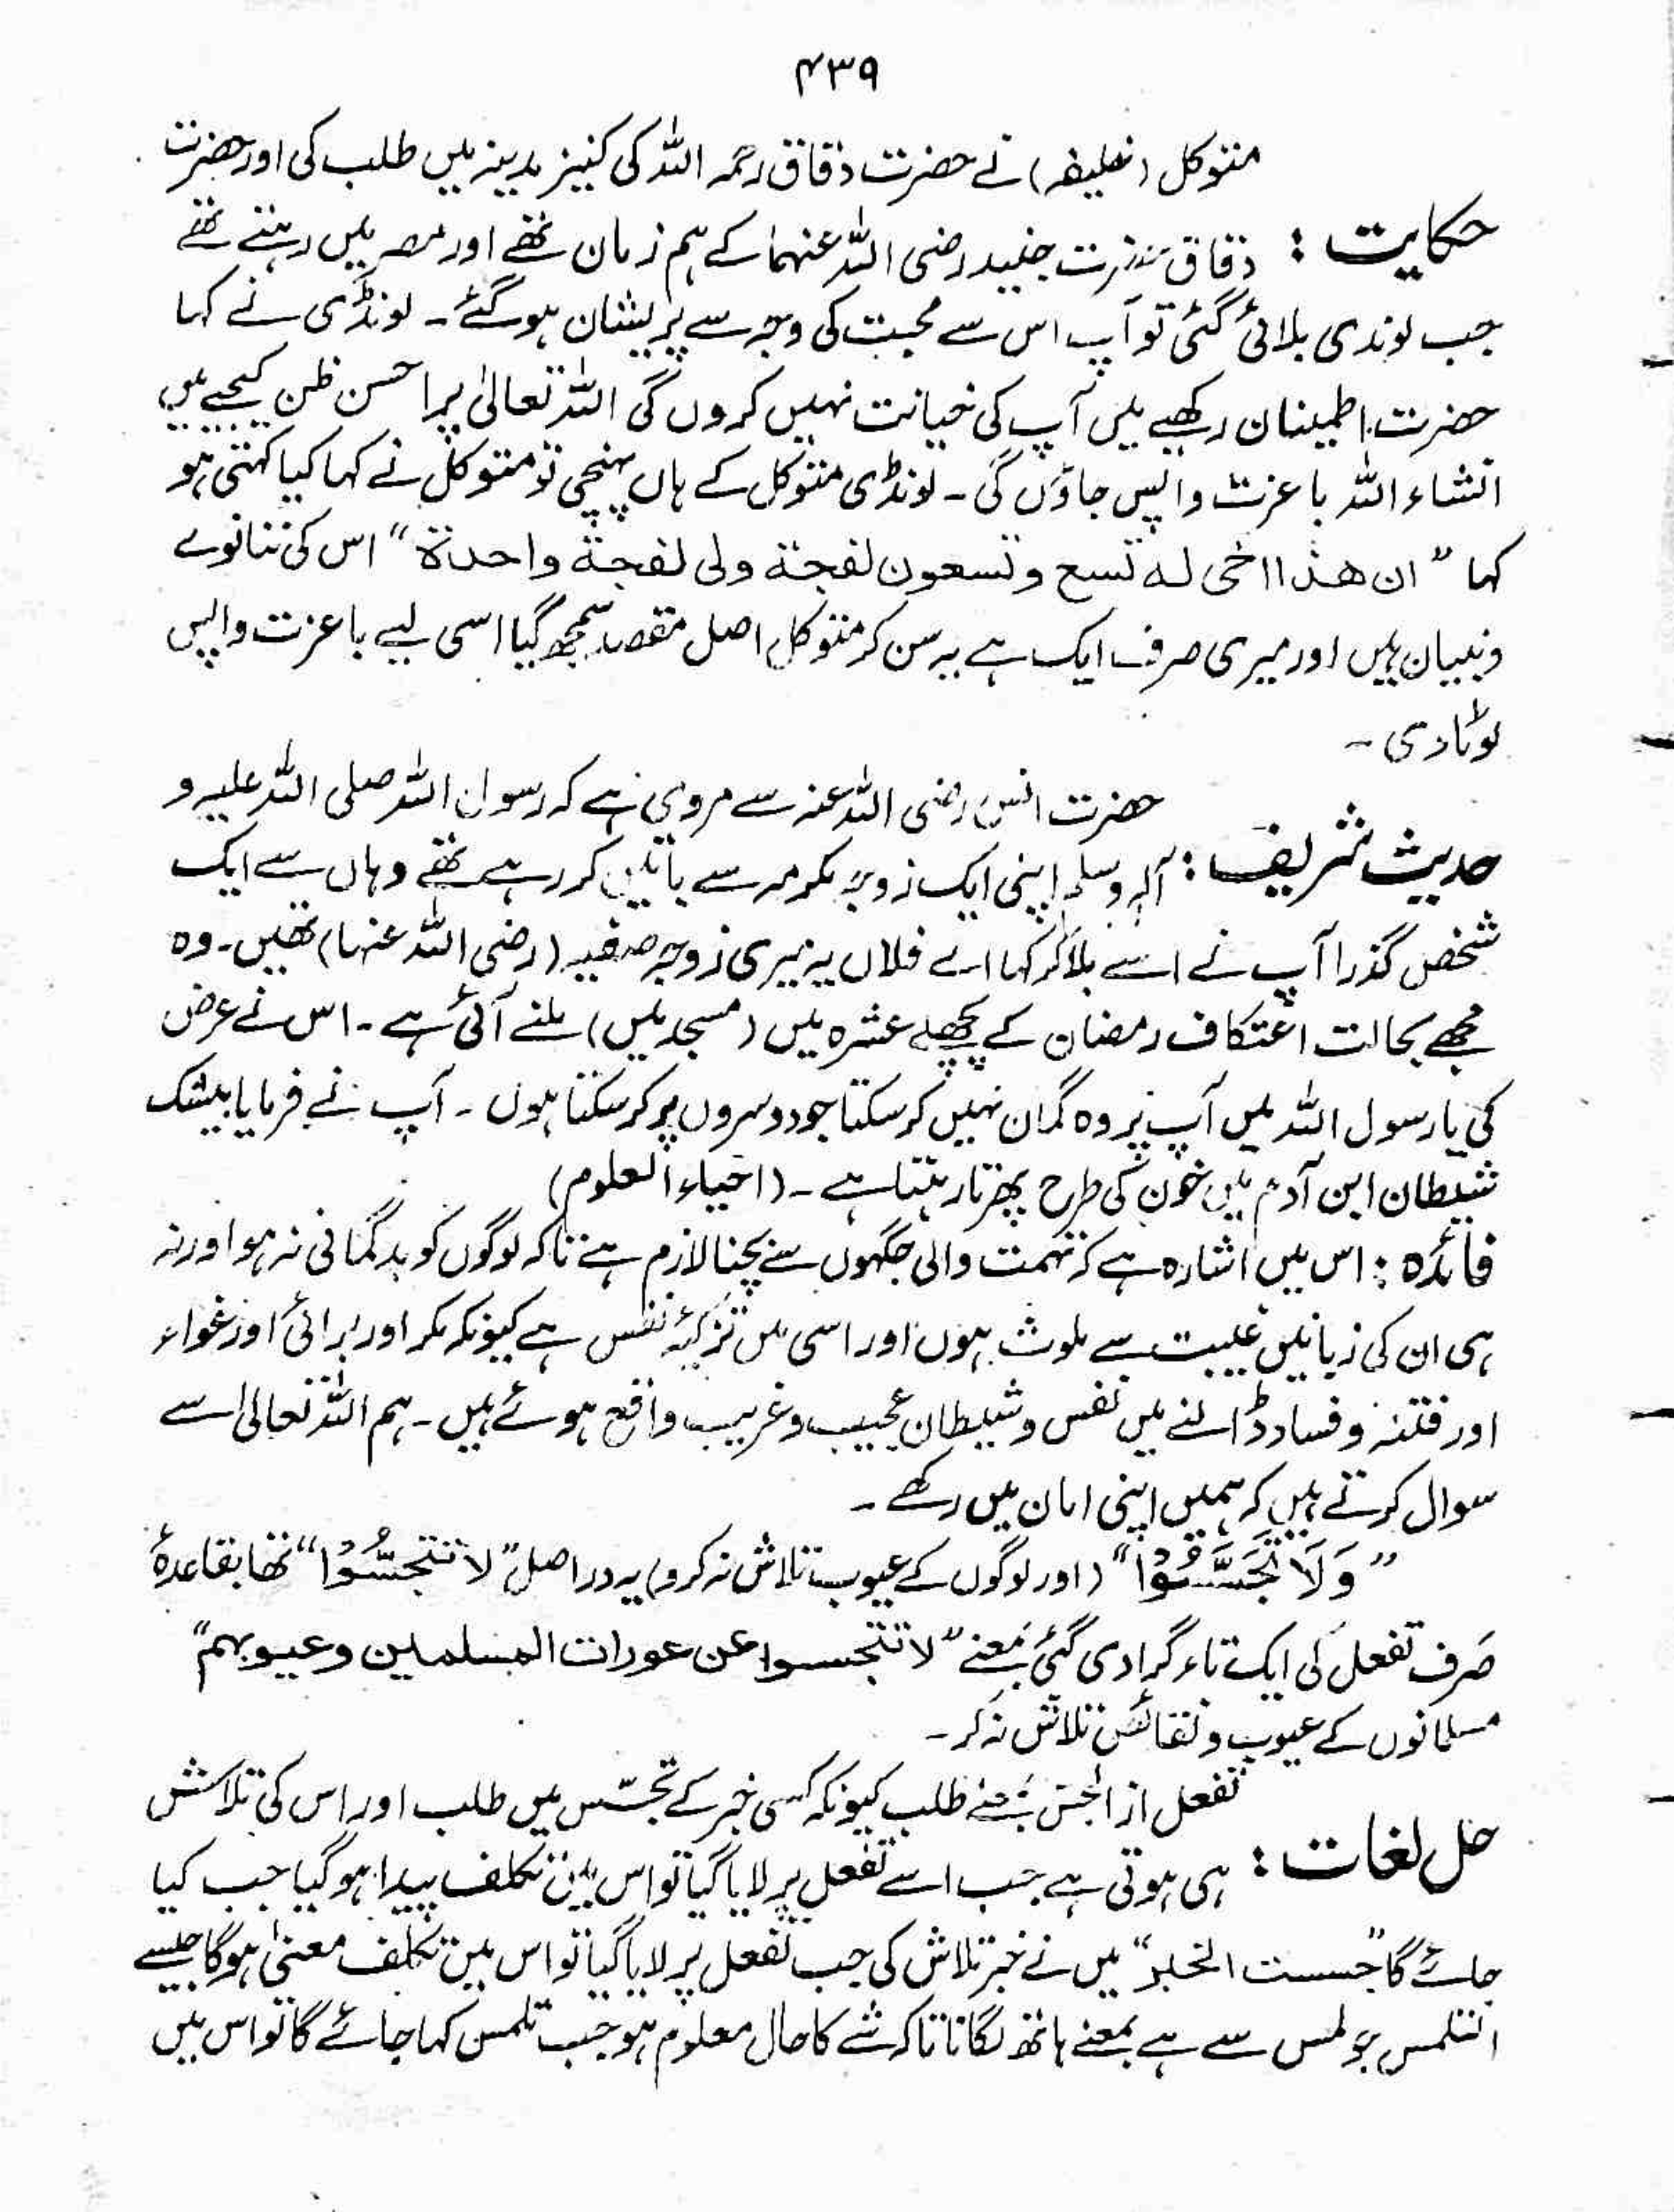 ۴۳۹
متوکل (خلیفہ) نے حضرت دقاق رحمہ اللہ کی کنیز مدینہ میں طلب کی اور حضرت
حکایت : دقاق حضرت جنید رضی اللہ عنہما کے ہم زمان تھے اور مصر میں رہتے تھے
جب لوندی بلائی گئی تو آپ اس سے محبت کی وجہ سے پریشان ہوگئے۔ لونڈی نے کہا
حضرت اطمینان رکھیے میں آپ کی خیانت نہیں کروں گی اللہ تعالیٰ پر احسن ظن کیجیے میں
انشاء اللہ باعزت واپس جاؤں گی۔ لونڈی متوکل کے ہاں پہنچی تو متوکل نے کہا کیا کہتی ہو
کہا ”ان ھذا اخی لہ تسع وتسعون لفجۃ ولی لفجۃ واحدۃ“ اس کی ننانوے
دنبیاں ہیں اور میری صرف ایک ہے یہ سن کر متوکل اصل مقصد سمجھ گیا اسی لیے باعزت واپس
لوٹادی۔
حضرت انس رضی اللہ عنہ سے مروی ہے کہ رسول اللہ صلی اللہ علیہ و
حدیث شریف : آلہ وسلم اپنی ایک زوجہ مکرمہ سے باتیں کر رہے تھے وہاں سے ایک
شخص گذرا آپ نے اسے بلا کر کہا اے فلاں یہ میری زوجہ صفیہ (رضی اللہ عنہا) تھیں۔ وہ
مجھے بحالت اعتکاف رمضان کے پچھلے عشرہ میں (مسجد میں) ملنے آئی ہے۔ اس نے عرض
کی یا رسول اللہ میں آپ پر وہ گمان نہیں کر سکتا جو دوسروں پر کر سکتا ہوں۔ آپ نے فرمایا بیشک
شیطان ابن آدم میں خون کی طرح پھرتا رہتا ہے۔ (احیاء العلوم)
فائدہ : اس میں اشارہ ہے کہ تہمت والی جگہوں سے بچنا لازم ہے تاکہ لوگوں کو بدگمانی نہ ہو اور نہ
ہی ان کی زبانیں غیبت سے ملوث ہوں اور اسی میں تزکیۂ نفس ہے کیونکہ مکر اور برائی اور غواء
اور فتنہ و فساد ڈالنے میں نفس و شیطان عجیب و غریب واقع ہوئے ہیں۔ ہم اللہ تعالیٰ سے
سوال کرتے ہیں کہ ہمیں اپنی امان میں رکھے۔
”وَلَا تَجَسَّسُوْا“ (اور لوگوں کے عیوب تلاش نہ کرو) یہ در اصل ”لا تتجسَّسُوْا“ تھا بقاعدۂ
صَرف تفعل کی ایک تاء گرا دی گئی بمعنے ”لا تتجسسوا عن عورات المسلمین وعیوبہم“
مسلمانوں کے عیوب و نقائص تلاش نہ کر۔
تفعل از الجس بمعنے طلب کیونکہ کسی خبر کے تجسّس میں طلب اور اس کی تلاش
حل لغات : ہی ہوتی ہے جب اسے تفعل پر لایا گیا تو اس میں تکلف پیدا ہو گیا جب کہا
جائے گا ”جسست الخبر“ میں نے خبر تلاش کی جب تفعل پر لایا گیا تو اس میں تکلف معنیٰ ہوگا جیسے
التلمس جو لمس سے ہے بمعنے ہاتھ لگانا تاکہ شے کا حال معلوم ہو جب تلمس کہا جائے گا تو اس میں